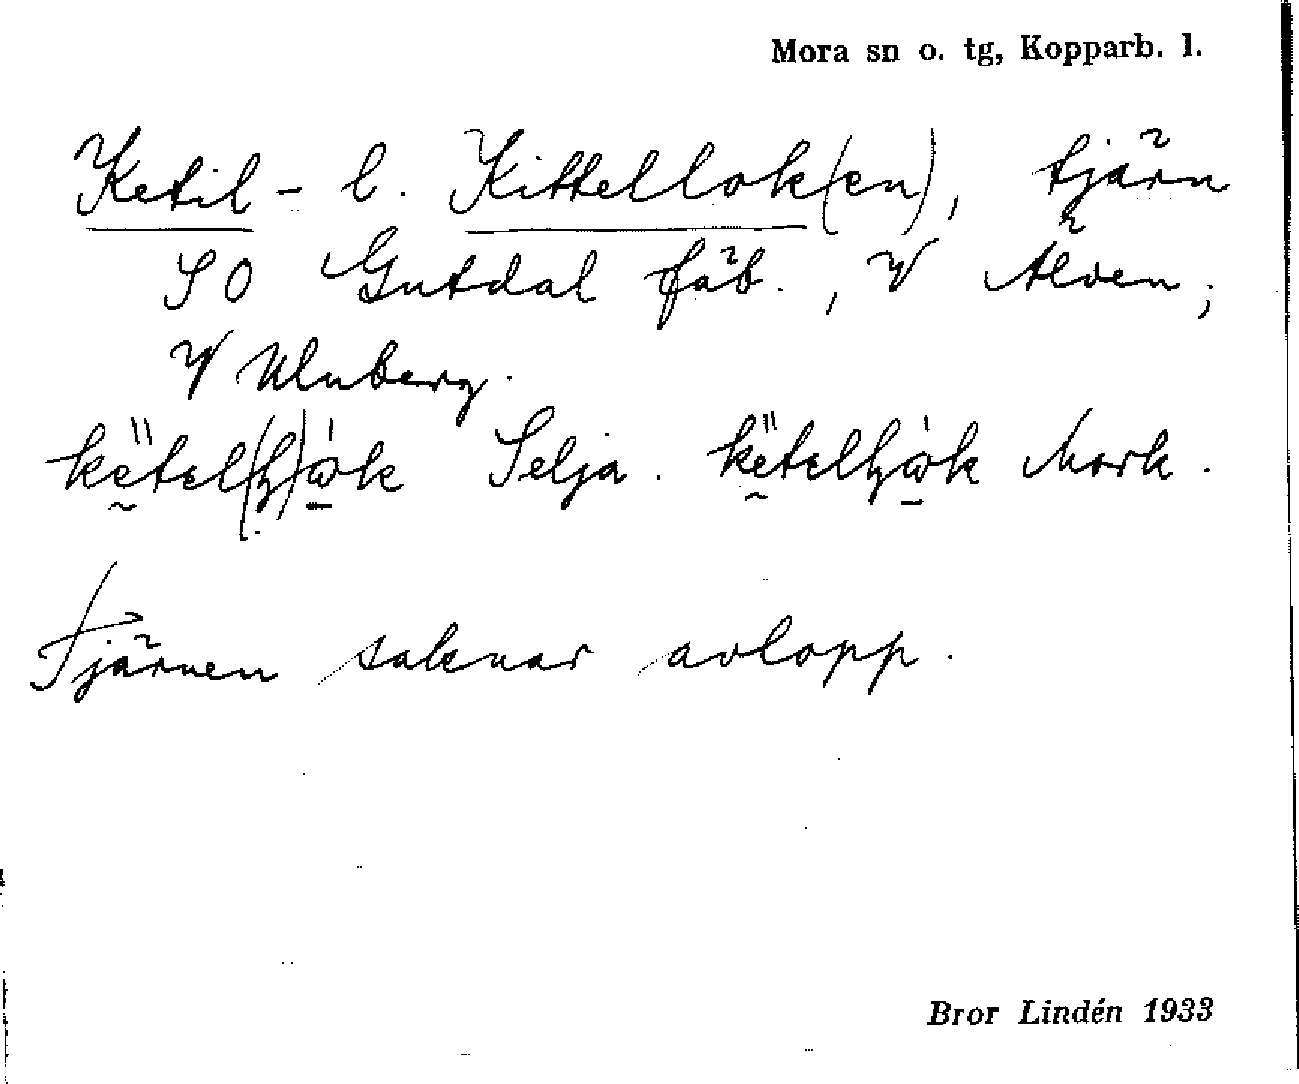 Mora sn o. tg, Kopparb. l.
Ketil- l. Kittellok(en), tjärn
SO Gutdal fäb., V Älven;
V Uluberg.
Selja. Mork.
Tjärnen saknar avlopp.
Bror Lindén 1933